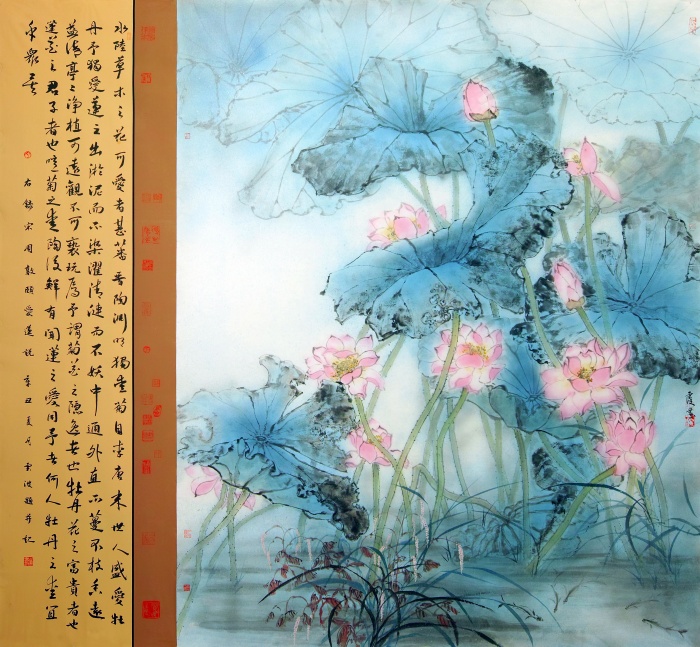 水陸草木之花可愛者甚蕃晋陶渊明獨愛菊自李唐来世人盛愛牡
丹予獨愛蓮之出淤泥而不染濯清漣而不妖中通外直不蔓不枝香遠
益清亭々淨植可遠觀不可褻玩焉予謂菊花之隐逸者也牡丹花之富貴者也
蓮花之君子者也噫菊之愛陶後鮮有聞蓮之愛同予者何人牡丹之愛宜
乎眾矣
右錄宋周敦頤愛蓮說 辛丑夏月 雲波題并記